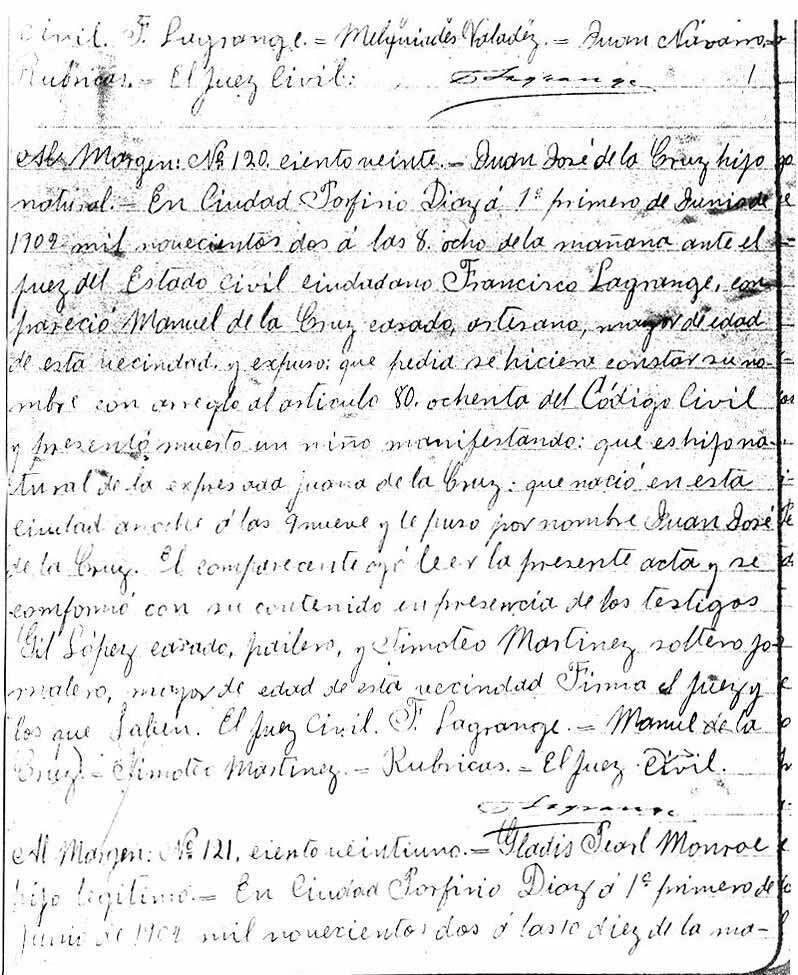 civil. F. Lagrange. = Melquiades Valadéz. = Juan Navarro
Rubricas. = El Juez Civil: F Lagrange.
Al Margen: No. 120. ciento veinte. = Juan José de la Cruz hijo
natural. = En Ciudad Porfirio Diaz á 1º primero de Junio de
1902 mil novecientos dos á las 8. ocho de la mañana ante el
juez del Estado Civil ciudadano Francisco Lagrange, com
pareció Manuel de la Cruz casado, artesano, mayor de edad
de esta vecindad. y expuso: que pedia se hiciera constar su no-
mbre con arreglo al articulo 80. ochenta del Código Civil
y presentó muerto un niño manifestando: que es hijo na-
tural de la expresada Juana de la Cruz: que nació en esta
ciudad anoche á las 9 nueve y le puso por nombre Juan José
de la Cruz. El compareciente oyó leer la presente acta y se
comformó con su contenido en presencia de los testigos
Gil López casado, pailero, y Timoteo Martinez soltero, jor
nalero, mayor de edad de esta vecindad Firma el juez y
los que saben. El Juez Civil. F. Lagrange. = Manuel de la
Cruz. = Timoteo Martinez. = Rubricas. = El Juez Civil.
F Lagrange
Al Margen: No. 121. ciento veintiuno. = Gladis Pearl Monroe
hijo legitimo. = En Ciudad Porfirio Diaz á 1º primero de
Junio de 1902 mil novecientos dos á las 10 diez de la ma-